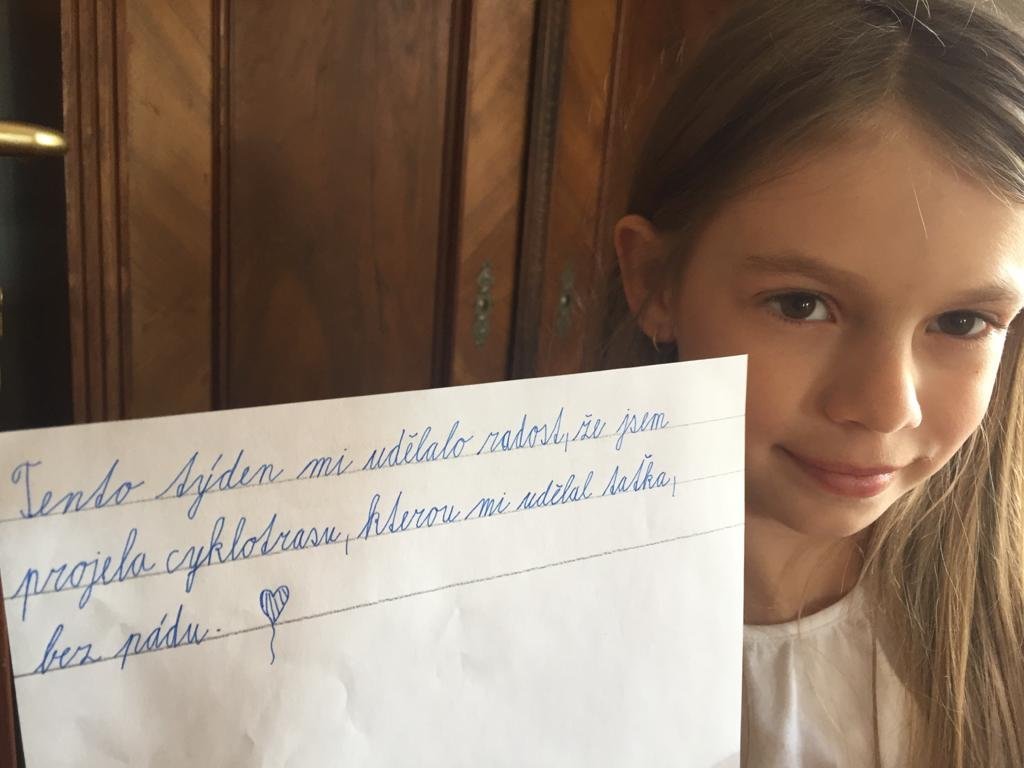 Tento týden mi udělalo radost, že jsem
projela cyklotrasu, kterou mi udělal taťka,
bez pádu.